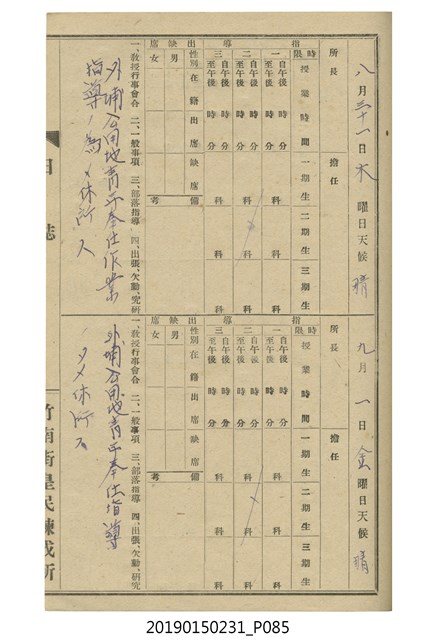 八月三十一日木曜日天候晴
所長 擔任
指導
時限 授業時間 一期生 二期生 三期生
一 自午後 至午後 時 分 科 科 科
二 自午後 至午後 時 分 科 科 科
三 自午後 至午後 時 分 科 科 科
出缺席
性別 在籍 出席 缺席 備考
男
女
一、教授行事會合 二、一般事項 三、部落指導 四、出張、欠勤、究研
外埔入合用地青年奉仕作業
指導ノ為メ休所ス
九月一日金曜日天候晴
所長 擔任
指導
時限 授業時間 一期生 二期生 三期生
一 自午後 至午後 時 分 科 科 科
二 自午後 至午後 時 分 科 科 科
三 自午後 至午後 時 分 科 科 科
出缺席
性別 在籍 出席 缺席 備考
男
女
一、教授行事會合 二、一般事項 三、部落指導 四、出張、欠勤、研究
外埔入合用地青年奉仕指導
ノタメ休所ス
日誌
竹南街皇民鍊成所
20190150231_P085